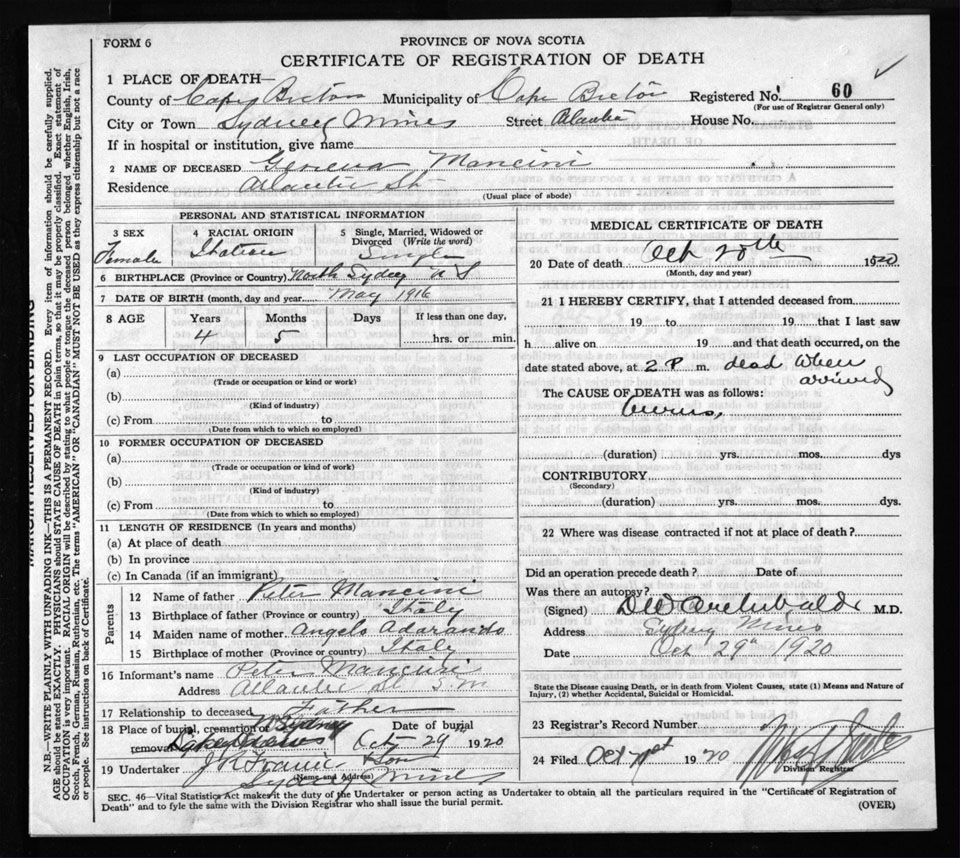 FORM 6
PROVINCE OF NOVA SCOTIA
CERTIFICATE OF REGISTRATION OF DEATH
1 PLACE OF DEATH—
County of Cape Breton Municipality of Cape Breton Registered No. 60
(For use of Registrar General only)
City or Town Sydney Mines Street Atlantic House No.
If in hospital or institution, give name
2 NAME OF DECEASED Geneva Mancini
Residence Atlantic St.
(Usual place of abode)
PERSONAL AND STATISTICAL INFORMATION
3 SEX
Female
4 RACIAL ORIGIN
5 Single, Married, Widowed or Divorced (Write the word)
Single
6 BIRTHPLACE (Province or Country) North Sydney N S
7 DATE OF BIRTH (month, day and year) May 1916
8 AGE Years Months Days If less than one day,
4 5 hrs. or min.
9 LAST OCCUPATION OF DECEASED
(a)
(Trade or occupation or kind or work)
(b)
(Kind of industry)
(c) From to
(Date from which to which so employed)
10 FORMER OCCUPATION OF DECEASED
(a)
(Trade or occupation or kind of work)
(b)
(Kind of industry)
(c) From to
(Date from which to which so employed)
11 LENGTH OF RESIDENCE (In years and months)
(a) At place of death
(b) In province
(c) In Canada (if an immigrant)
Parents
12 Name of father Peter Mancini
13 Birthplace of father (Province or country) Ithaly
14 Maiden name of mother Angelo
15 Birthplace of mother (Province or country) Ithaly
16 Informant's name Peter Mancini
Address Atlantic St S. M
17 Relationship to deceased Father
18 Place of burial, cremation or removal N Sydney Date of burial Oct 29 1920
19 Undertaker & Son
(Name and Address)
Sydney Mines
MEDICAL CERTIFICATE OF DEATH
20 Date of death Oct 28th 1920
(Month, day and year)
21 I HEREBY CERTIFY, that I attended deceased from
19 to 19 that I last saw
h alive on 19 and that death occurred, on the
date stated above, at 2 P m. dead when arrived
The CAUSE OF DEATH was as follows:
(duration) yrs. mos. dys
CONTRIBUTORY
(Secondary)
(duration) yrs. mos. dys.
22 Where was disease contracted if not at place of death?
Did an operation precede death? Date of
Was there an autopsy?
(Signed) D W Archibald M.D.
Address Sydney Mines
Date Oct 29th 1920
State the Disease causing Death, or in death from Violent Causes, state (1) Means and Nature of Injury, (2) whether Accidental, Suicidal or Homicidal.
23 Registrar's Record Number
24 Filed Oct 1920
Division Registrar
SEC. 46—Vital Statistics Act makes it the duty of the Undertaker or person acting as Undertaker to obtain all the particulars required in the "Certificate of Registration of
Death" and to fyle the same with the Division Registrar who shall issue the burial permit.
(OVER)
MARGIN RESERVED FOR BINDING
N.B.—WRITE PLAINLY WITH UNFADING INK—THIS IS A PERMANENT RECORD. Every item of information should be carefully supplied.
AGE should be stated EXACTLY. PHYSICIANS should STATE CAUSE OF DEATH in plain terms, so that it may be properly classified. Exact statement of
OCCUPATION is very important. RACIAL ORIGIN will be described by stating to what people or tongue the deceased person belonged whether English, Irish,
Scotch, French, German, Russian, Ruthenian, etc. The terms "AMERICAN" OR "CANADIAN" MUST NOT BE USED as they express citizenship but not a race
or people. See instructions on back of Certificate.